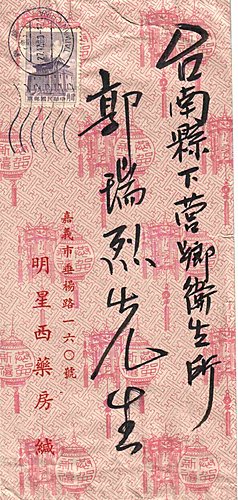 台南縣下营鄉衛生所
郭瑞烈先生
嘉義市垂楊路一六〇號
明星西藥房緘
中華民國郵票
恭賀新禧